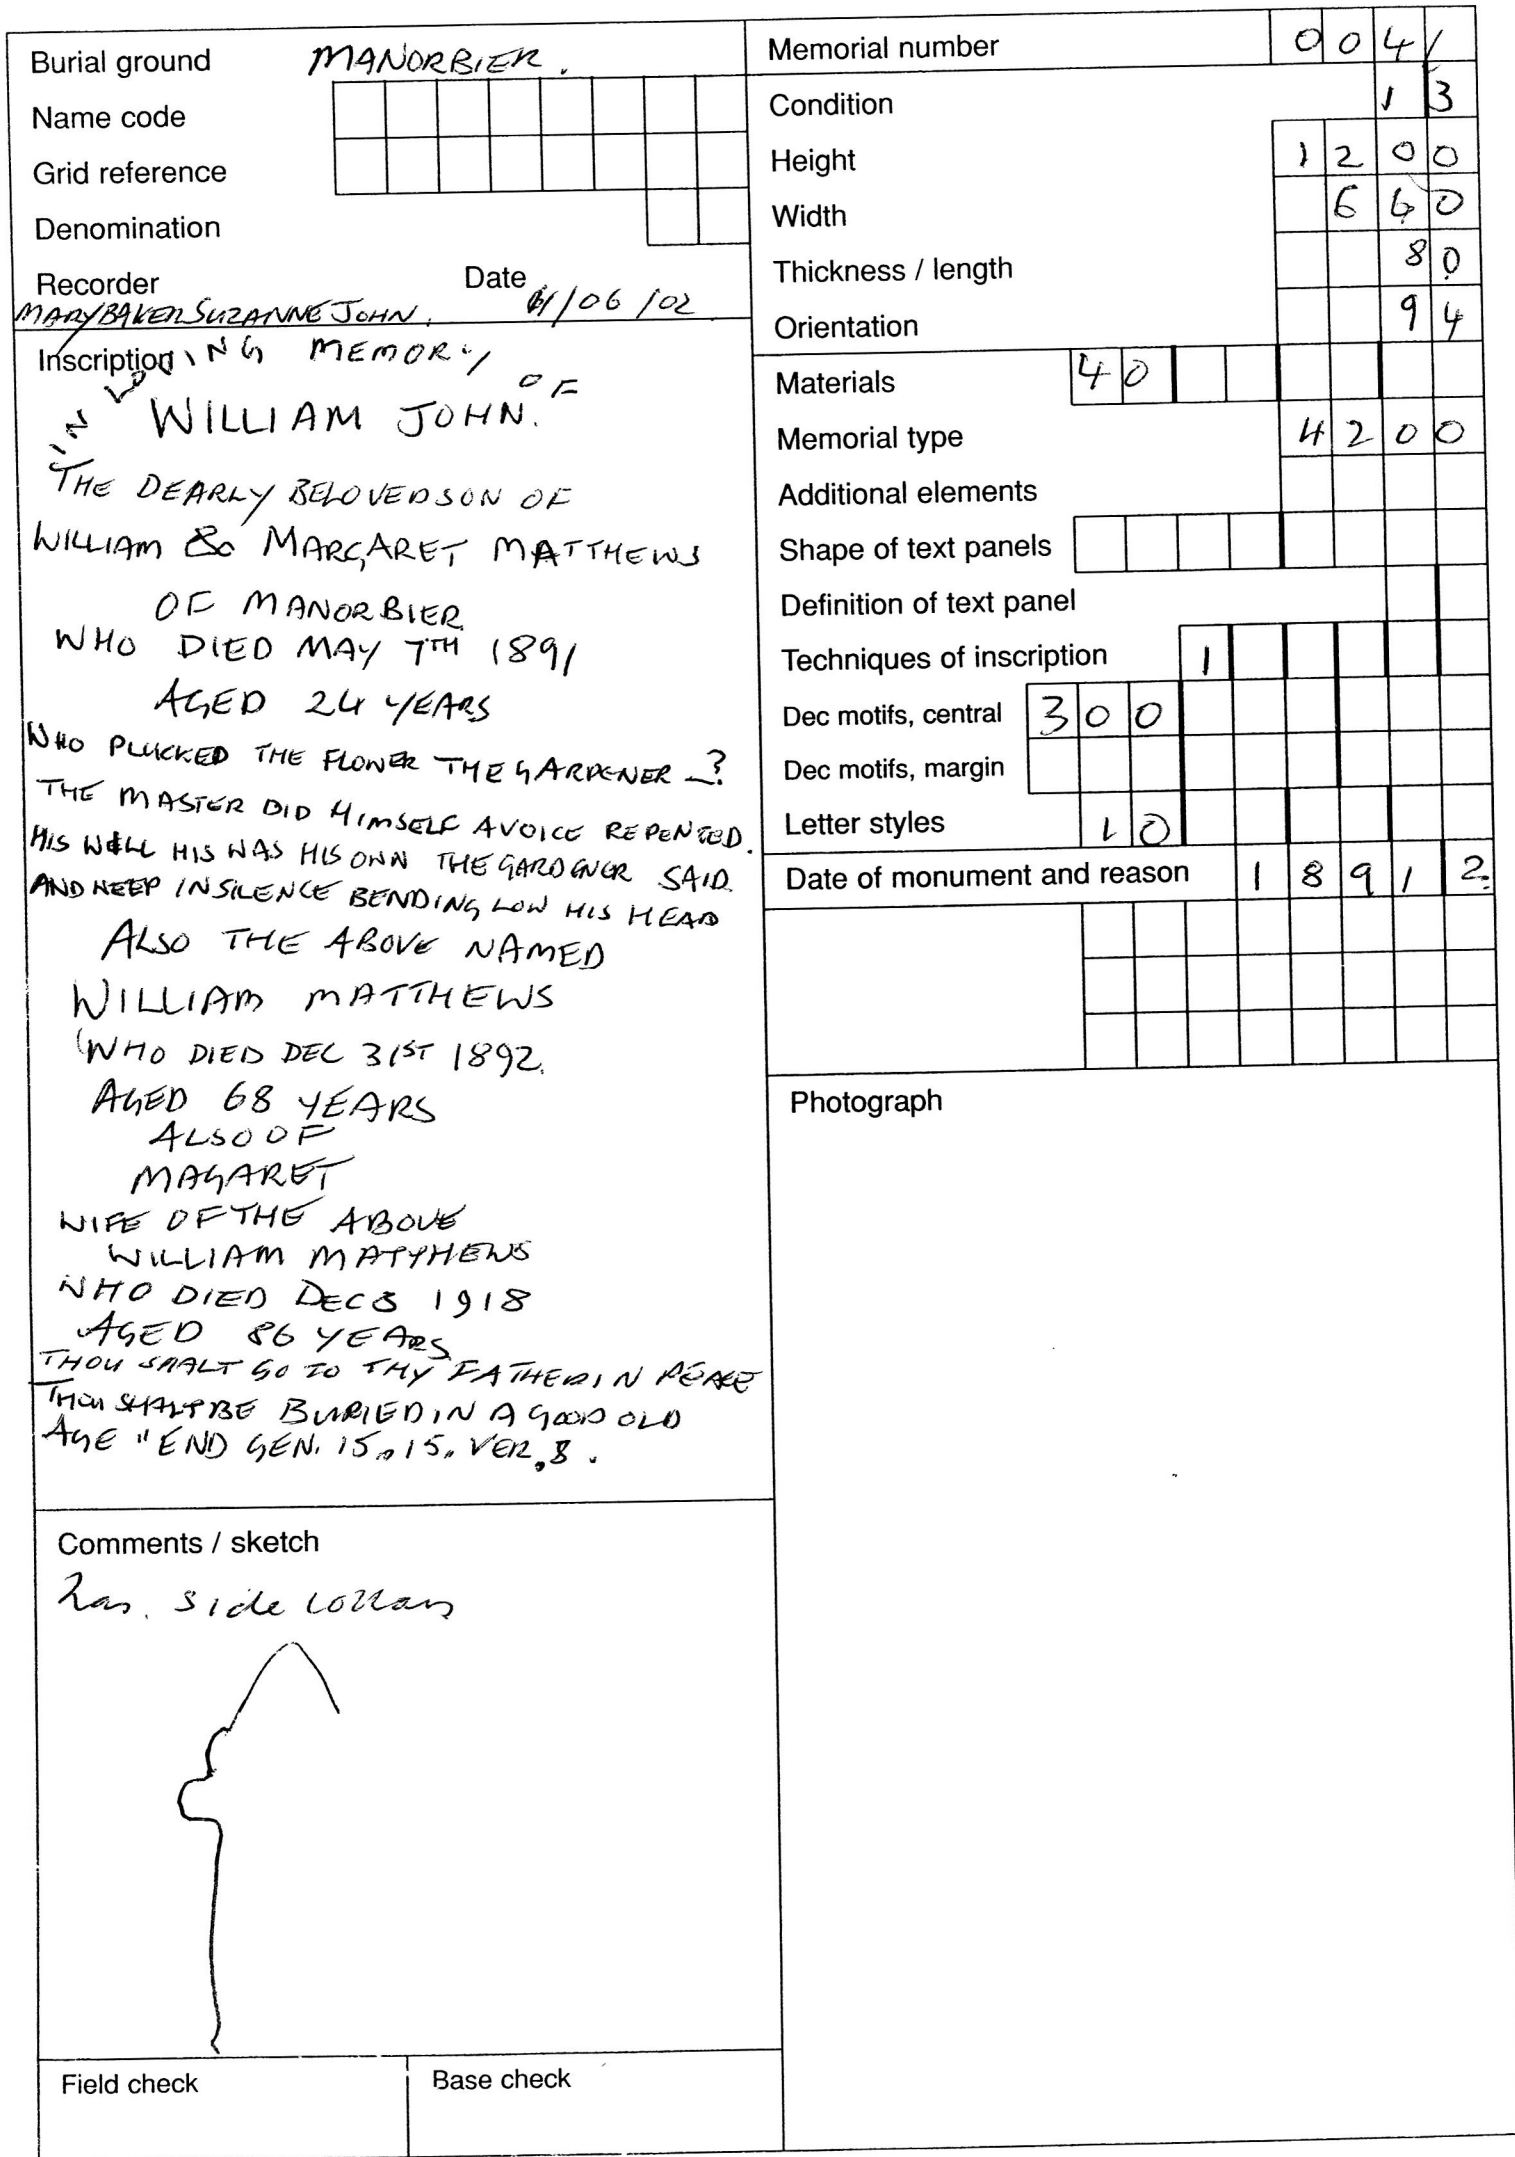 Burial ground MANORBIER.
Name code
Grid reference
Denomination
Recorder Date
MARY BAKER SUZANNE JOHN. /06/02
Inscription
IN LOVING MEMORY OF
WILLIAM JOHN.
THE DEARLY BELOVED SON OF
WILLIAM & MARGARET MATTHEWS
OF MANORBIER
WHO DIED MAY 7TH 1891
AGED 24 YEARS
WHO PLUCKED THE FLOWER THE GARDENER —?
THE MASTER DID HIMSELF A VOICE REPENTED.
HIS WILL HIS WAS HIS OWN THE GARDENER SAID
AND WEEP IN SILENCE BENDING LOW HIS HEAD
ALSO THE ABOVE NAMED
WILLIAM MATTHEWS
WHO DIED DEC 31ST 1892.
AGED 68 YEARS
ALSO OF
MAGARET
WIFE OF THE ABOVE
WILLIAM MATYHEWS
WHO DIED DEC 8 1918
AGED 86 YEARS
THOU SHALT GO TO THY FATHER IN PEACE
THOU SHALT BE BURIED IN A GOOD OLD
AGE "END GEN. 15,, 15,, VER, 8.
Comments / sketch
has. side collars
Field check
Base check
Memorial number 0041
Condition 13
Height 1200
Width 660
Thickness / length 80
Orientation 94
Materials 40
Memorial type 4200
Additional elements
Shape of text panels
Definition of text panel
Techniques of inscription 1
Dec motifs, central 300
Dec motifs, margin
Letter styles 10
Date of monument and reason 1891 2
Photograph